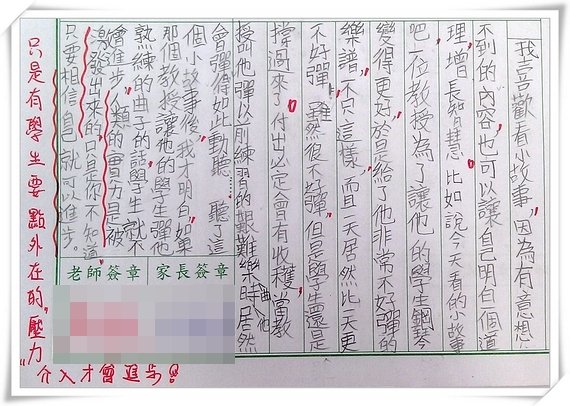 我喜歡看小故事，因為有意想
不到的內容也可以讓自己明白個道
理，增長智慧。比如說今天看的小故事
吧，一位教授為了讓他的學生鋼琴
變得更好，於是給了他非常不好彈的
樂譜，不只這樣，而且一天居然比一天更
不好彈。雖然很不好彈，但是學生還是
撐過來了，付出必定會有收穫，當教
授叫他彈以前練習的艱難樂曲時，他居然
會彈得如此動聽……聽了這
個小故事後，我才明白，如果
那個教授讓他的學生彈他
熟練的曲子的話，學生就不
會進步，人類的實力是被
激發出來的，只是你不知道，
只要相信自己就可以進步。
老師簽章
家長簽章
只是有學生要點外在的"壓力"
介入才會進步!